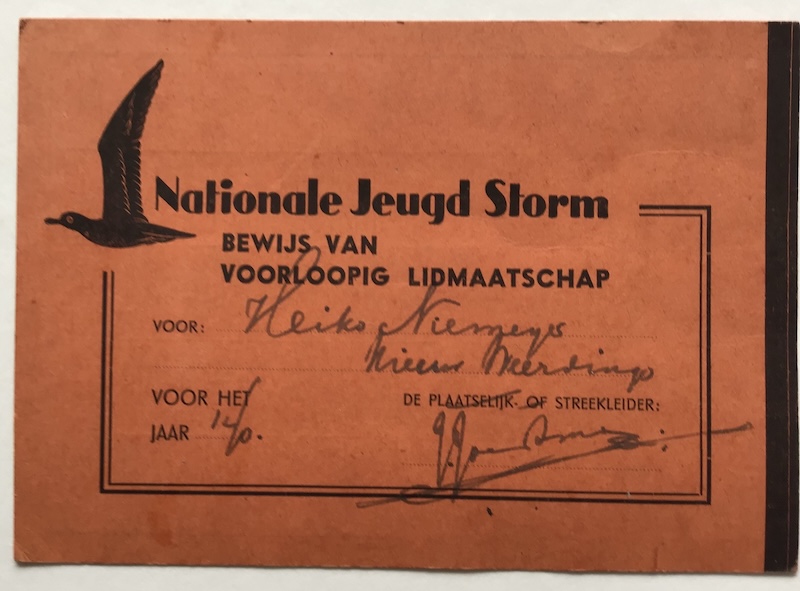 Nationale Jeugd Storm
BEWIJS VAN
VOORLOOPIG LIDMAATSCHAP
VOOR: Heiko Niemeyer
Nieuw Weerdinge
VOOR HET
JAAR
DE PLAATSELIJK- OF STREEKLEIDER: